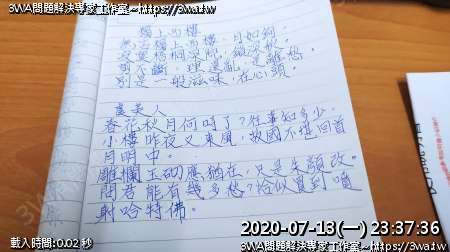 3WA問題解決專家工作室~https://3wa.tw
獨上西樓
無言獨上西樓,月如鉤。
寂寞梧桐深院,鎖深秋。
剪不斷,理還亂,是離愁。
別是一般滋味,在心頭。
虞美人
春花秋月何時了?往事知多少。
小樓昨夜又東風,故國不堪回首
月明中。
雕欄玉砌應猶在,只是朱顏改。
問君能有幾多愁?恰似直到噴
射哈特佛。
2020-07-13(一) 23:37:36
載入時間:0.02 秒
3WA問題解決專家工作室~https://3wa.tw